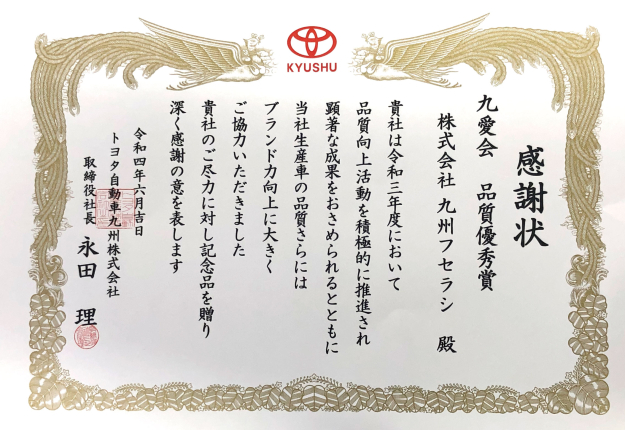 KYUSHU
感謝状
九愛会 品質優秀賞
株式会社 九州フセラシ 殿
貴社は令和三年度において
品質向上活動を積極的に推進され
顕著な成果をおさめられるとともに
当社生産車の品質さらには
ブランド力向上に大きく
ご協力いただきました
貴社のご尽力に対し記念品を贈り
深く感謝の意を表します
令和四年六月吉日
トヨタ自動車九州株式会社
取締役社長 永田 理